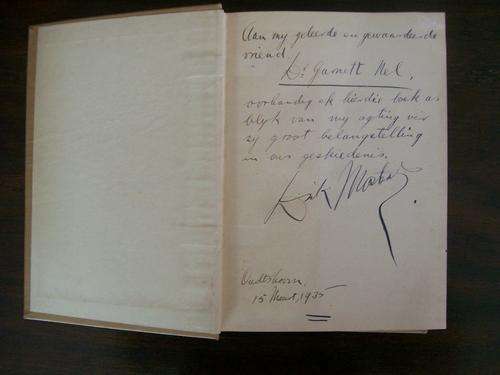 Aan my geleerde en gewaardeerde
vriend
Dr Garnett Nel,
oorhandig ek hierdie boek as
blyk van my agting vir
sy groot belangstelling
in ons geskiedenis.
Dirk Mostert.
Oudtshoorn,
15 Maart, 1935